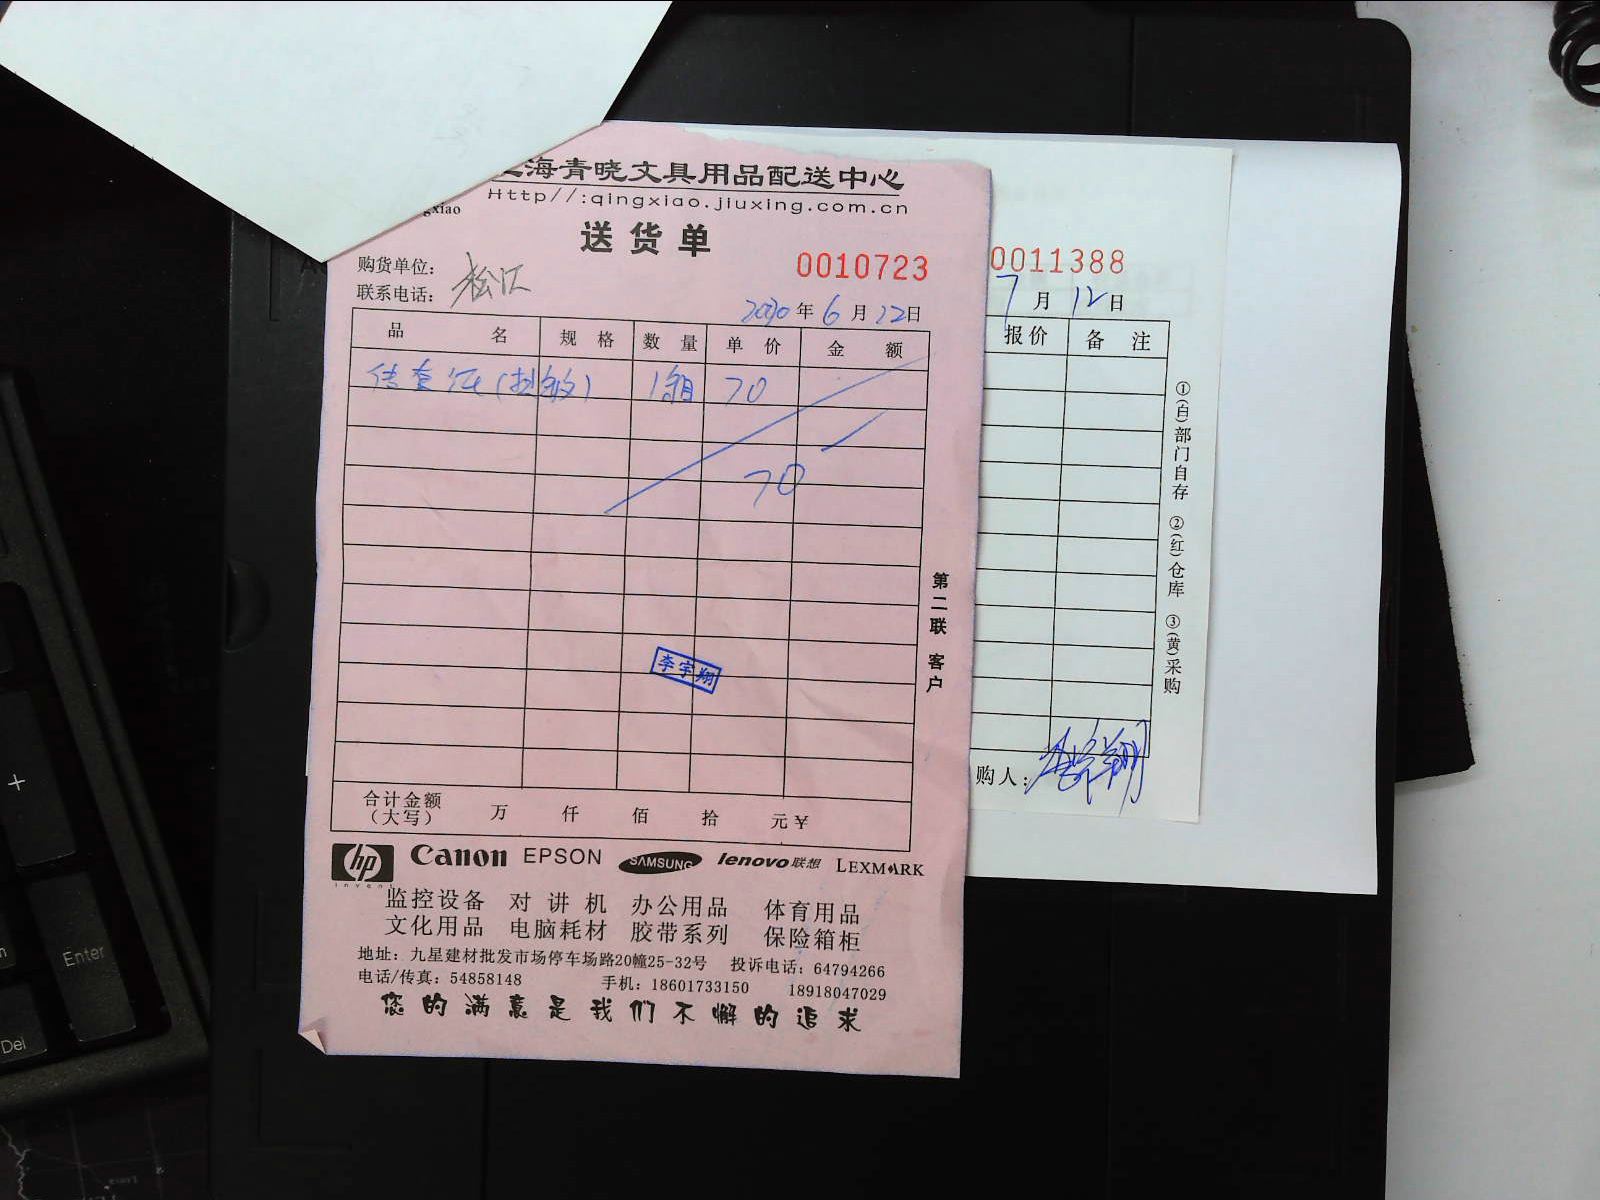 海青晓文具用品配送中心
Http//:qingxiao.jiuxing.com.cn
gxiao
送货单
0010723
购货单位:
联系电话:
松江
2020年6月12日
品名 规格 数量 单价 金额
(热敏) 1箱 70
70
第二联 客户
李宇翔
合计金额
(大写) 万 仟 佰 拾 元¥
hp
invent
Canon EPSON SAMSUNG lenovo联想 LEXMARK
监控设备 对讲机 办公用品 体育用品
文化用品 电脑耗材 胶带系列 保险箱柜
地址:九星建材批发市场停车场路20幢25-32号 投诉电话:64794266
电话/传真:54858148 手机:18601733150 18918047029
您的满意是我们不懈的追求
0011388
7月12日
报价 备注
①(白)部门自存 ②(红)仓库 ③(黄)采购
购人:
+
Enter
Del